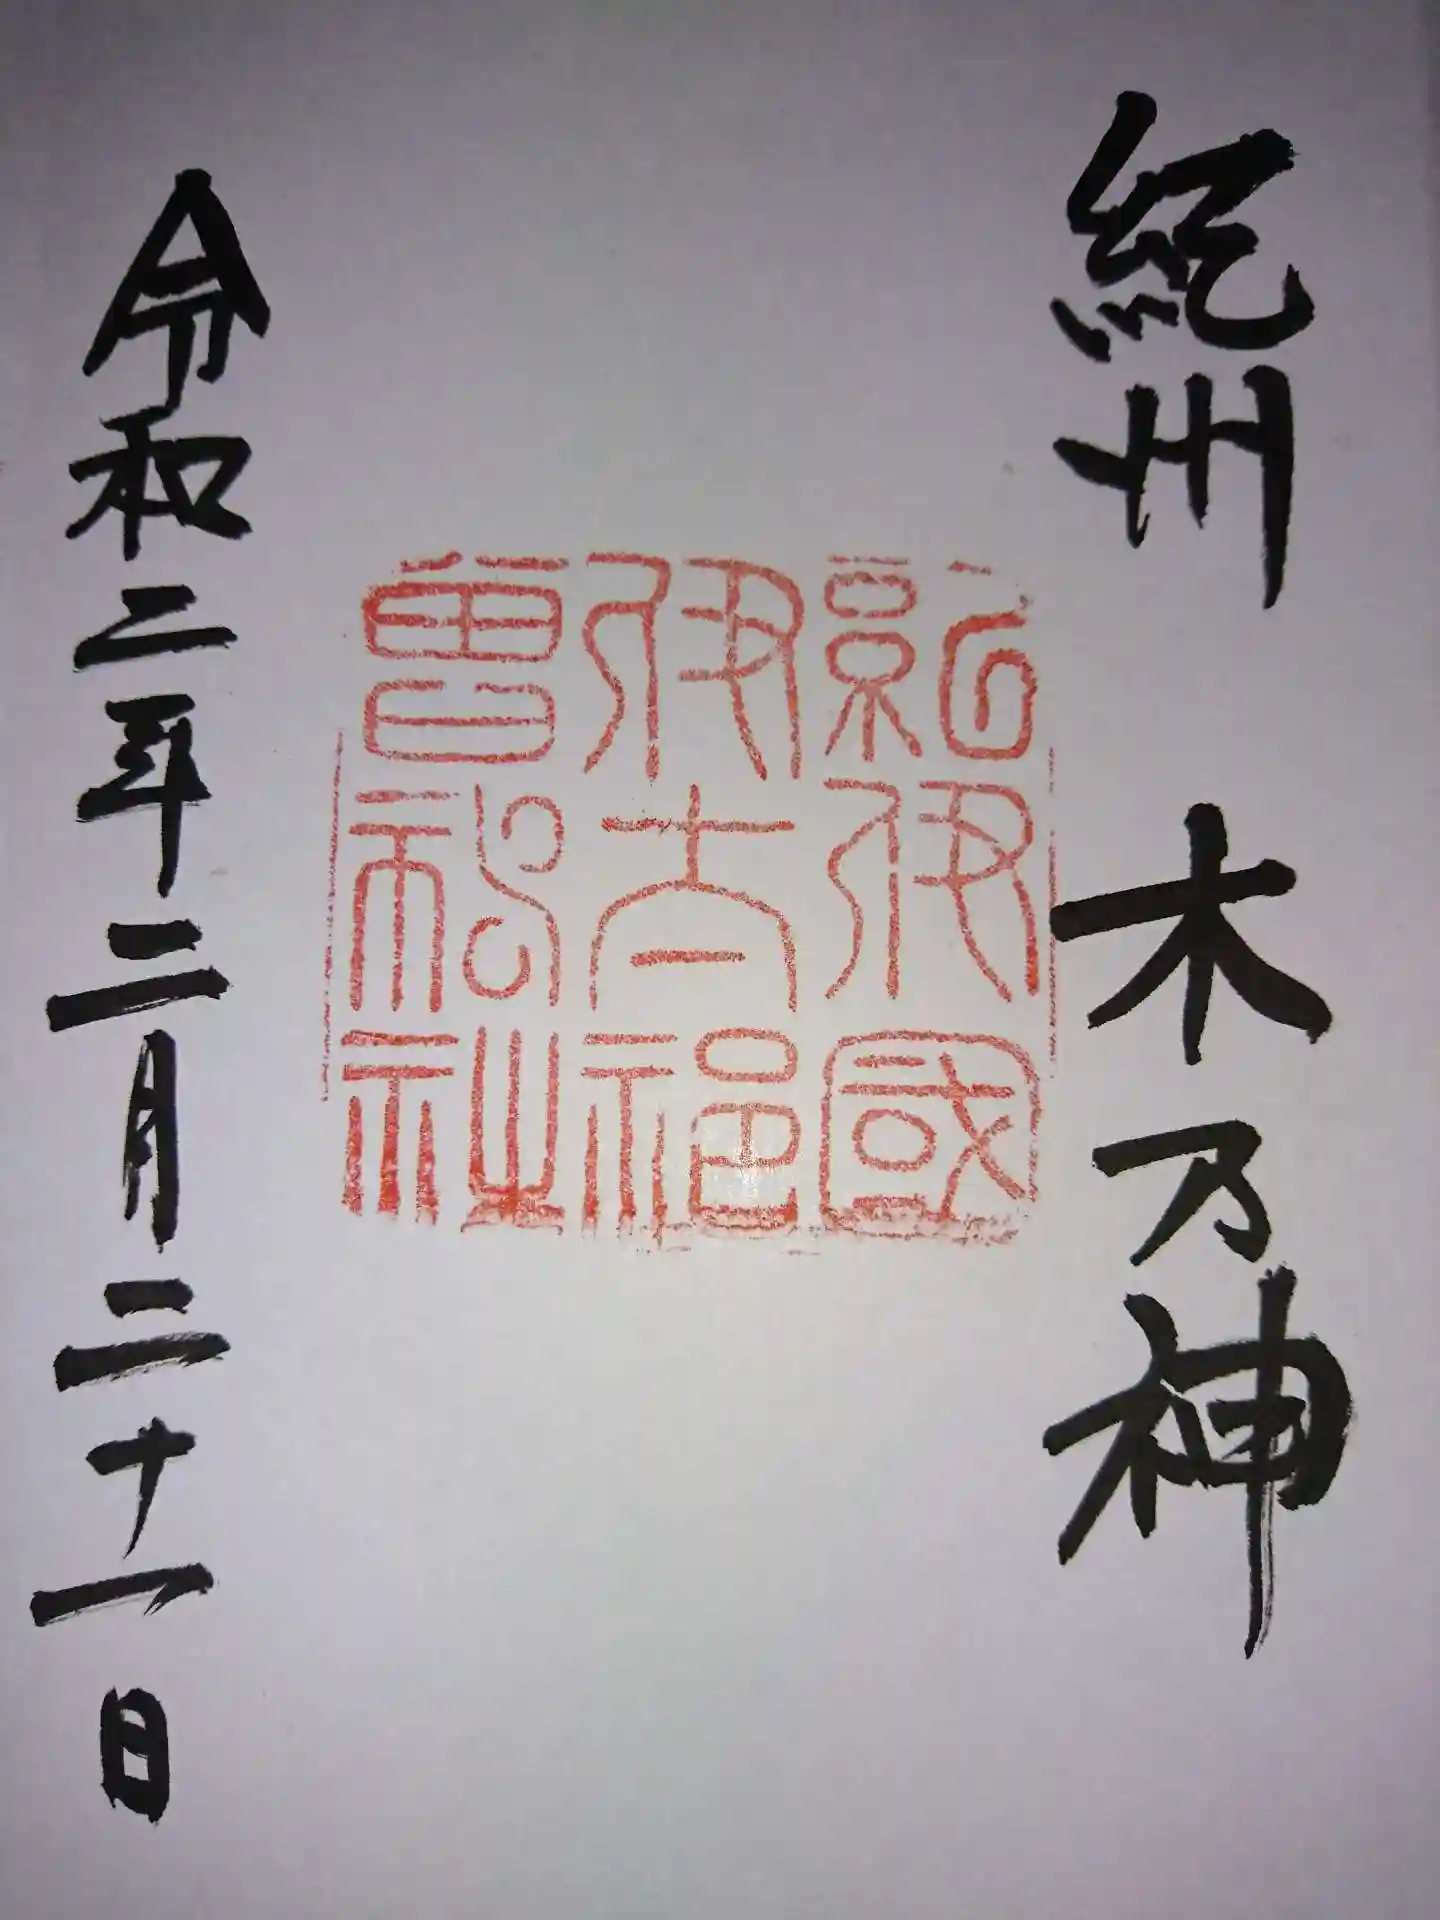 紀州 木乃神
紀伊國
伊太祁
曾神社
令和二年二月二十一日